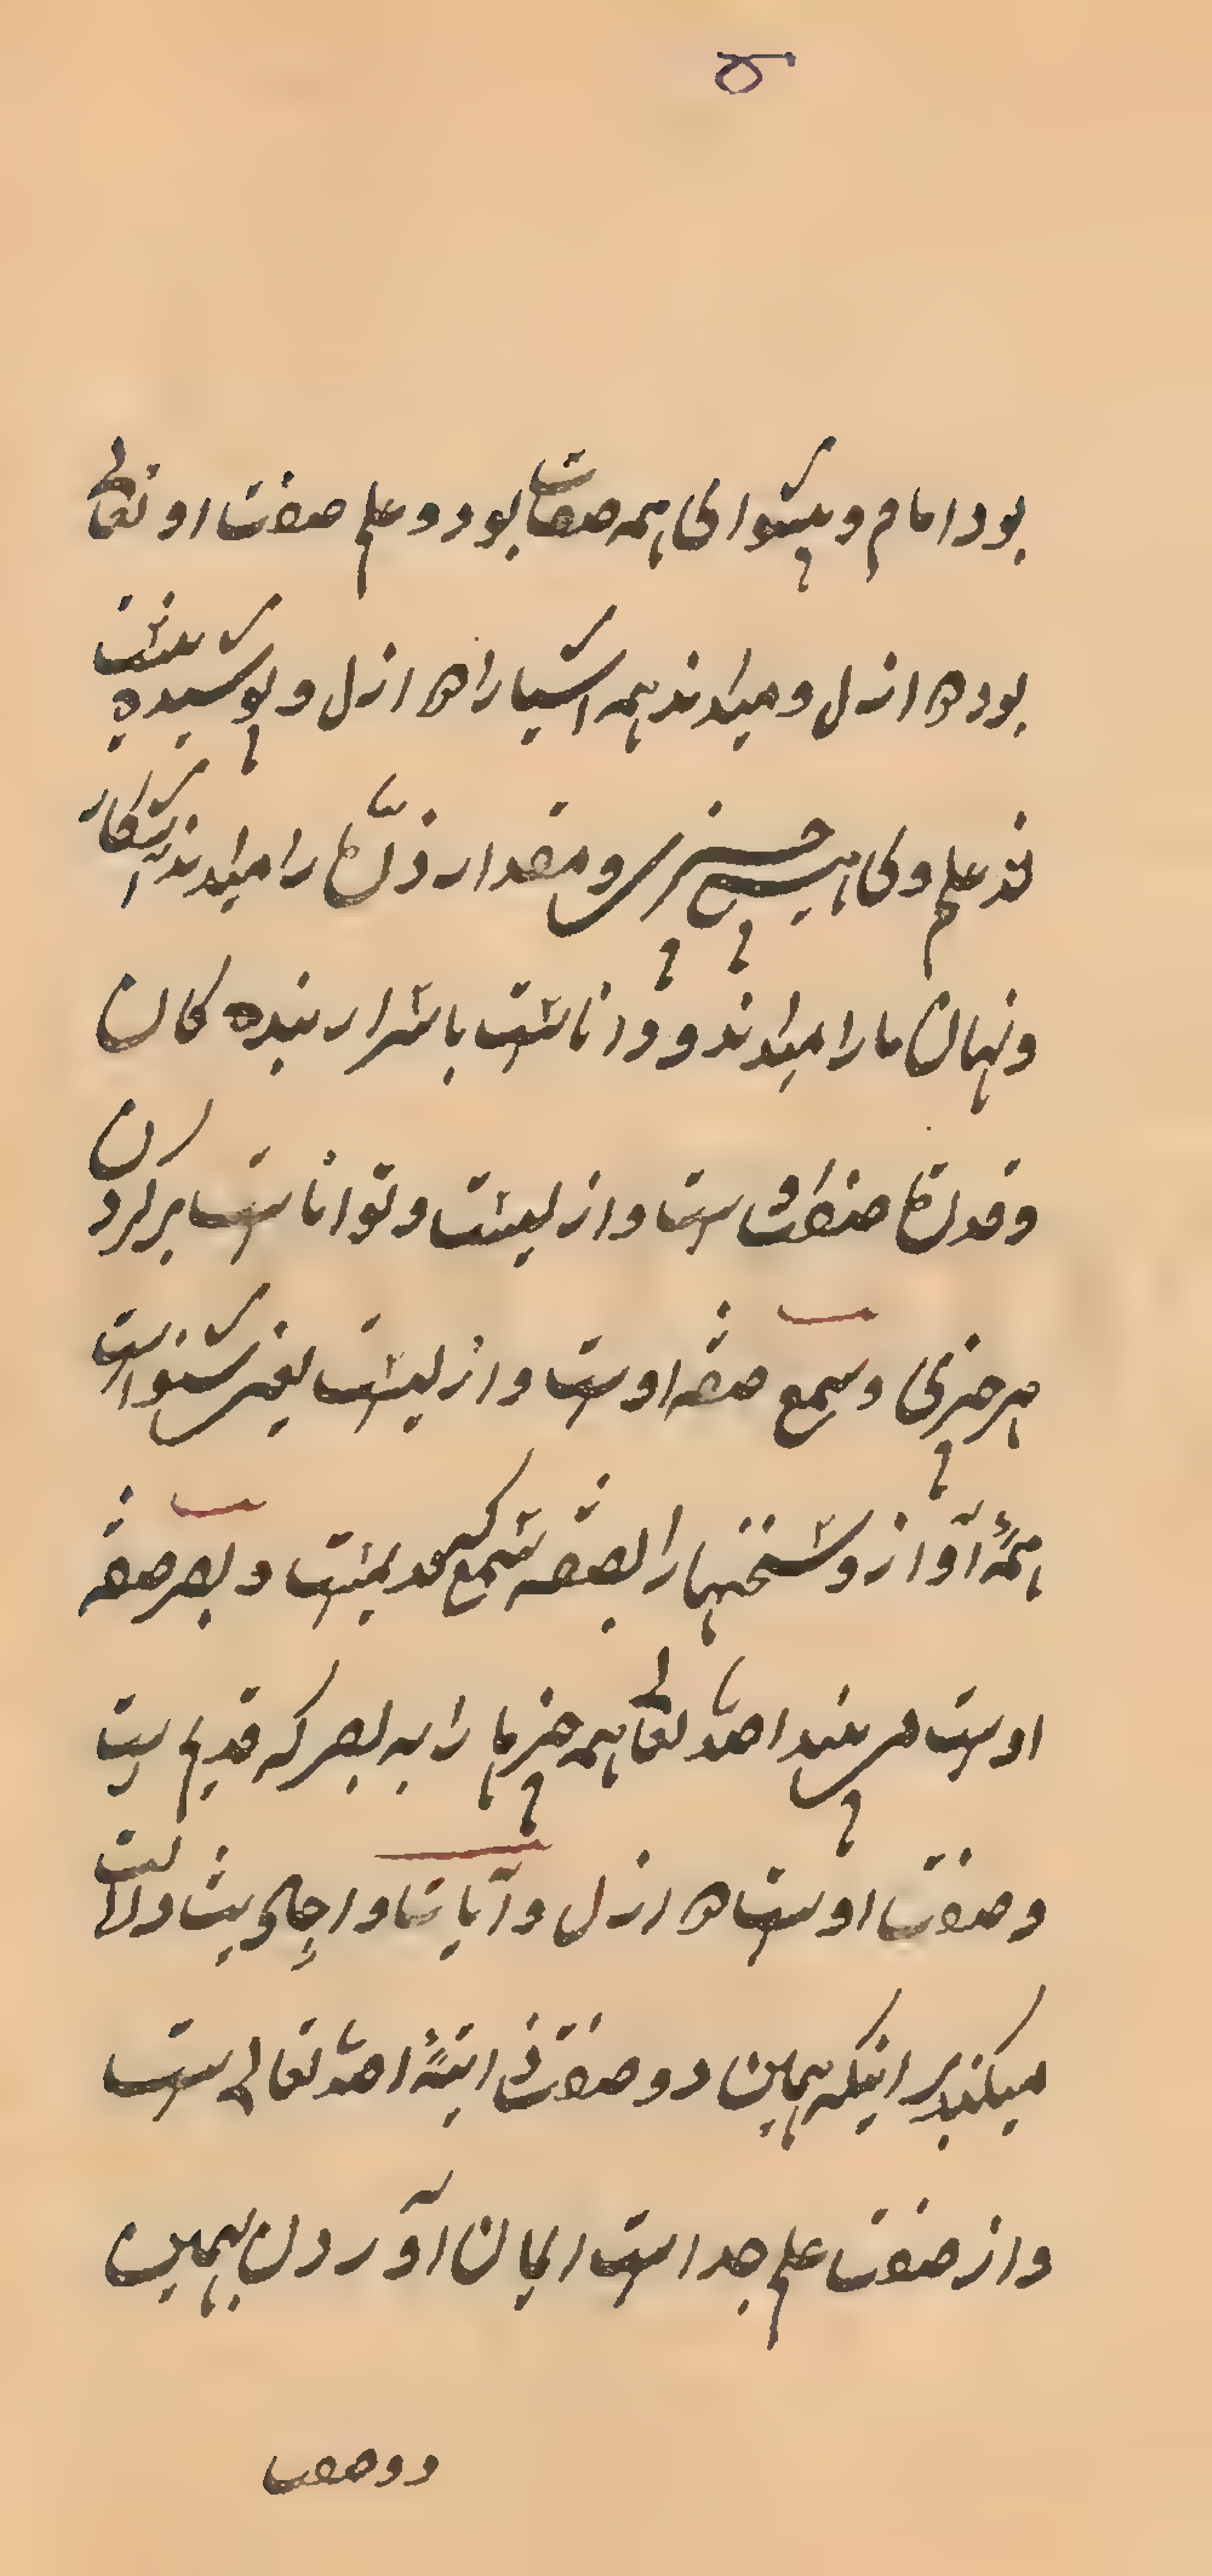 بود امام و پیشوای همه صفات بود و علم صفت او تعالی
بود در ازل و میداند همه اشیا را در ازل و پوشیده نیست
نزد علم وی هیچ چیزی و مقدار ذرة را میداند آشکار
و نهان ما را میداند و داناست باسرار بنده کان
و قدرة صفت اوست و ازلیست و تواناست بر کردن
هر چیزی و سمع صفة اوست و ازلیست یعنی شنواست
همهٔ آواز و سخنها را بصفة سمع که قدیمست و بصر صفة
اوست می بیند الله تعالی همه چیزها را به بصر که قدیم ست
و صفت اوست در ازل و آیات و احادیث دلالت
میکند بر اینکه همین دو صفت ذاتیهٔ الله تعالی ست
و از صفت علم جداست ایمان آوردن بهمین
دو صفت